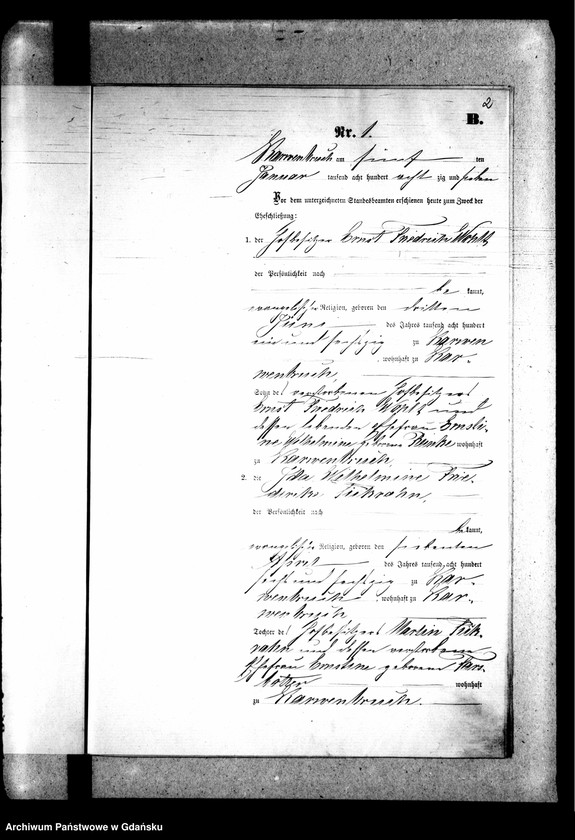 2
B.
Nr. 1.
Karwenbruch am fünf ten
Januar tausend acht hundert acht zig und sieben
Vor dem unterzeichneten Standesbeamten erschienen heute zum Zweck der
Eheschließung:
1. der Hofbesitzer Ernst Friedrich
der Persönlichkeit nach
be kannt,
evangelischer Religion, geboren den dritten
Juni des Jahres tausend acht hundert
ein und sechszig zu Karwen
, wohnhaft zu Kar-
wenbruch,
Sohn des verstorbenen Hofbesitzers
Ernst Friedrich und
dessen lebenden Ehefrau Emili-
ne Wilhelmine geborene wohnhaft
zu Karwenbruch
2. die Ida Wilhelmine Frie-
derike Fickrahn,
der Persönlichkeit nach
be kannt,
evangelischer Religion, geboren den siebenten
April des Jahres tausend acht hundert
sechs und sechszig zu Kar-
wenbruch, wohnhaft zu Kar-
wenbruch,
Tochter des Hofbesitzers Martin Fick-
rahn und dessen verstorbenen
Ehefrau Ernstine geborene
wohnhaft
zu Karwenbruch.
Archiwum Państwowe w Gdańsku